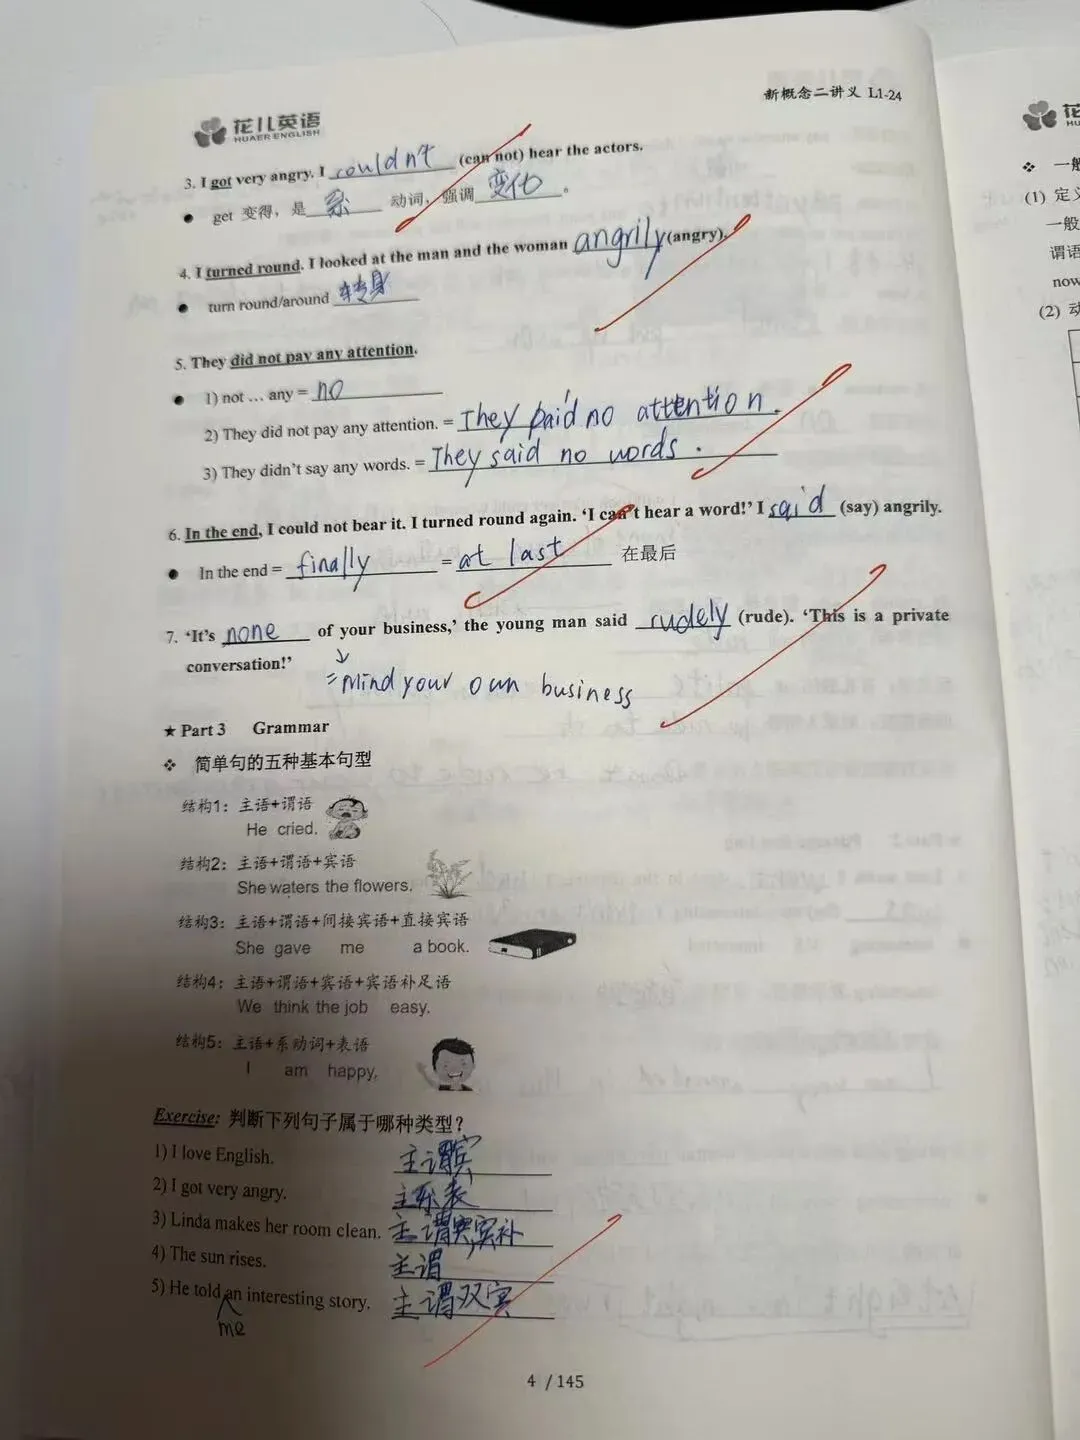 花儿英语
HUAER ENGLISH
新概念二讲义 L1-24
3. I got very angry. I couldn't (can not) hear the actors.
● get 变得，是 系 动词，强调 变化 。
4. I turned round. I looked at the man and the woman angrily (angry).
● turn round/around 转身
5. They did not pay any attention.
● 1) not … any = no
2) They did not pay any attention. = They paid no attention.
3) They didn't say any words. = They said no words.
6. In the end, I could not bear it. I turned round again. ‘I can't hear a word!’ I said (say) angrily.
● In the end = finally = at last 在最后
7. ‘It's none of your business,’ the young man said rudely (rude). ‘This is a private
conversation!’
= Mind your own business
★ Part 3 Grammar
❖ 简单句的五种基本句型
结构1：主语+谓语
He cried.
结构2：主语+谓语+宾语
She waters the flowers.
结构3：主语+谓语+间接宾语+直接宾语
She gave me a book.
结构4：主语+谓语+宾语+宾语补足语
We think the job easy.
结构5：主语+系动词+表语
I am happy.
Exercise: 判断下列句子属于哪种类型？
1) I love English. 主谓宾
2) I got very angry. 主系表
3) Linda makes her room clean. 主谓宾,宾补
4) The sun rises. 主谓
5) He told an interesting story. 主谓双宾
me
4 / 145
❖ 一般
(1) 定义
一般
谓语
now
(2) 动